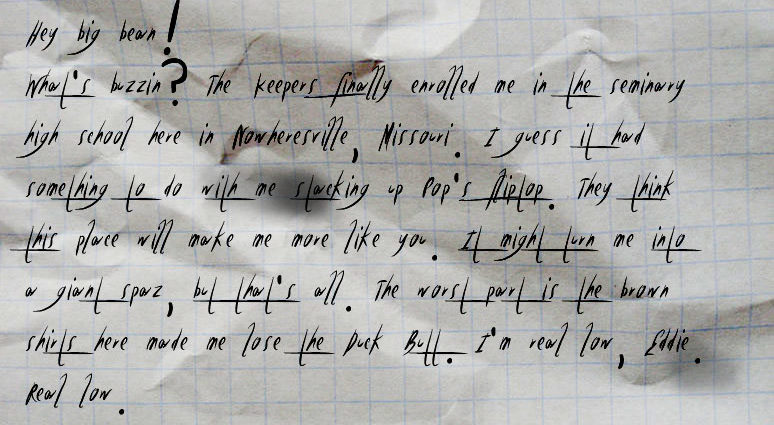 Hey big bean!
What's buzzin? The keepers finally enrolled me in the seminary
high school here in Nowheresville, Missouri. I guess it had
something to do with me stacking up Pop's fliptop. They think
this place will make me more like you. It might turn me into
a giant spaz, but that's all. The worst part is the brown
shirts here made me lose the Duck Butt. I'm real low, Eddie.
Real low.